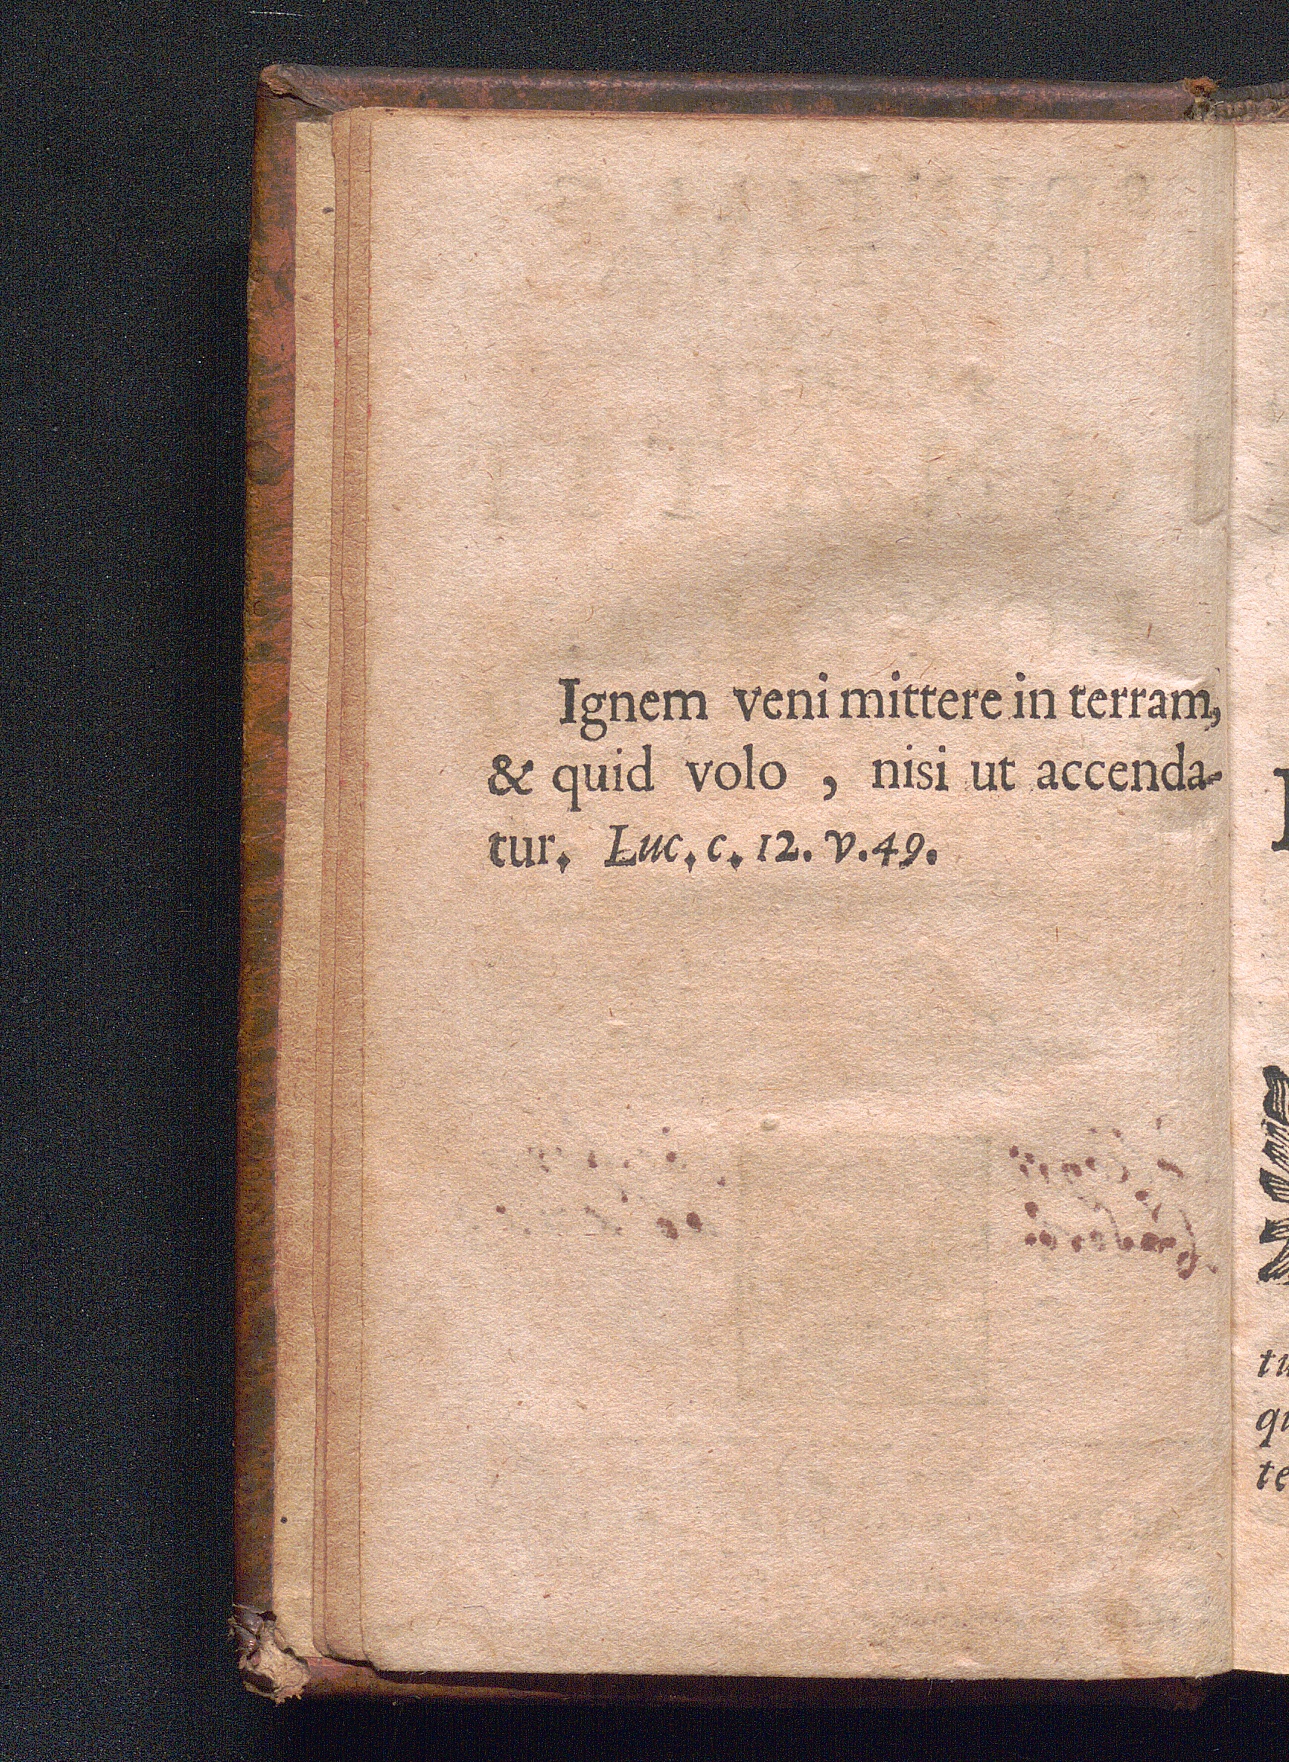 Ignem veni mittere in terram,
& quid volo , nisi ut accenda-
tur. Luc. c. 12. v. 49.
tu
qu
te